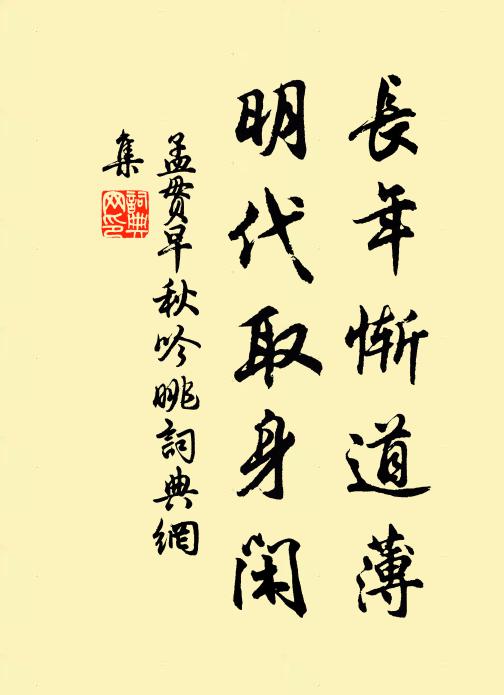 長年慚道薄
明代取身閑
孟貫早秋吟眺詞典網
集
詞典
网印